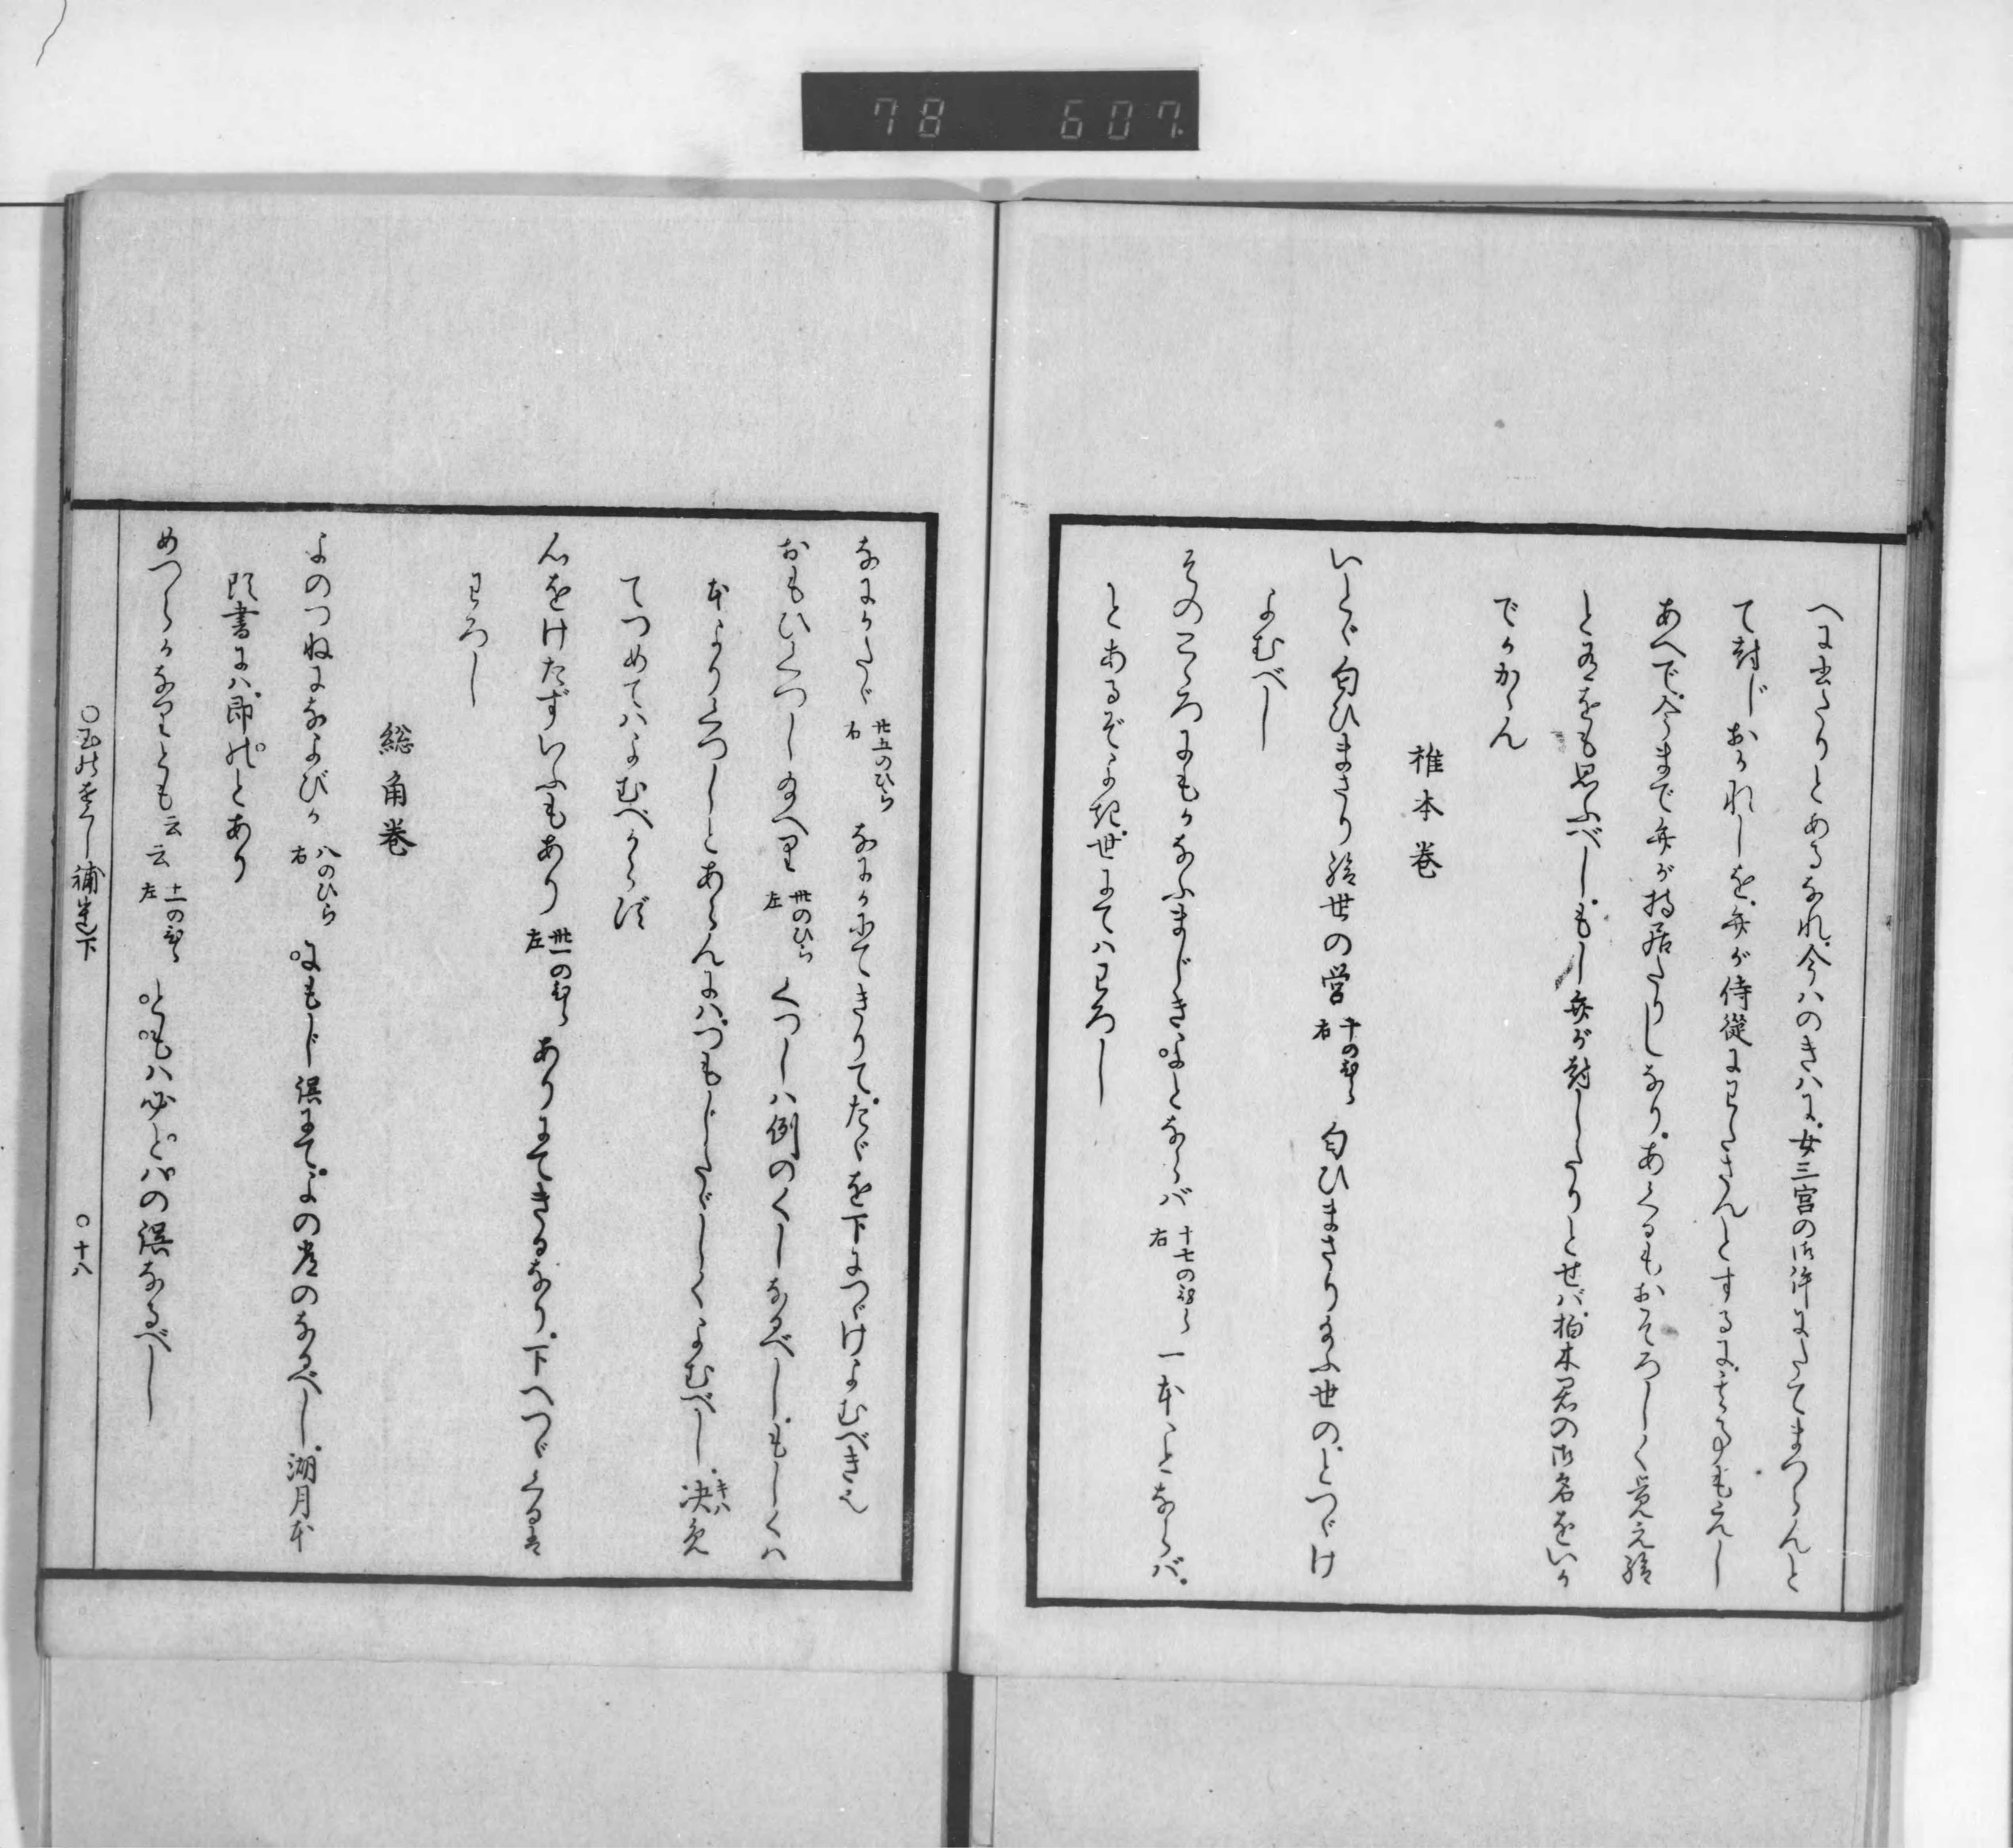 78 607
へに出たりとあるなれ、今ハのきハに、女三宮の御許にたてまつらんと
て封じおかれしを、弁が侍従にわたさんとするに、其事もえし
あへで、今まで弁が持居たりしなり、あくるもおそろしく覚え給
とあるをも思ふべし、もし弁が封したりとせバ、柏木君の御名をいか
でかかゝん
椎本巻
いとゞ匂ひまさり給世の営 十のひら右 匂ひまさり給ふ世の、とつゞけ
よむべし
そのこゝろにもかなふまじきよとならバ 十七のひら右 一本ことならバ、
とあるぞよき、世にてハわろし
なにかたゞ 廿五のひら右 なにかにてきりて、たゞを下につゞけよむべき也
おもひくつし給へり 卅のひら左 くつしハ例のくしなるべし、もしくハ
本よりくつしとあらんにハ、つもじたゞしくよむべし、决(キハ)免
てつめてハよむべからず
人をけたずいふもあり 卅一のひら左 ありにてきるなり、下へつゞくるハ
わろし
総角巻
よのつねになよびか 八のひら右 にもじ誤にて、よの常のなるべし、湖月本
頭書にハ、即のとあり
めつらかなりとも云云 十一のひら左 ともハ必どバの誤なるべし
○玉の小櫛補遺下 ○十八